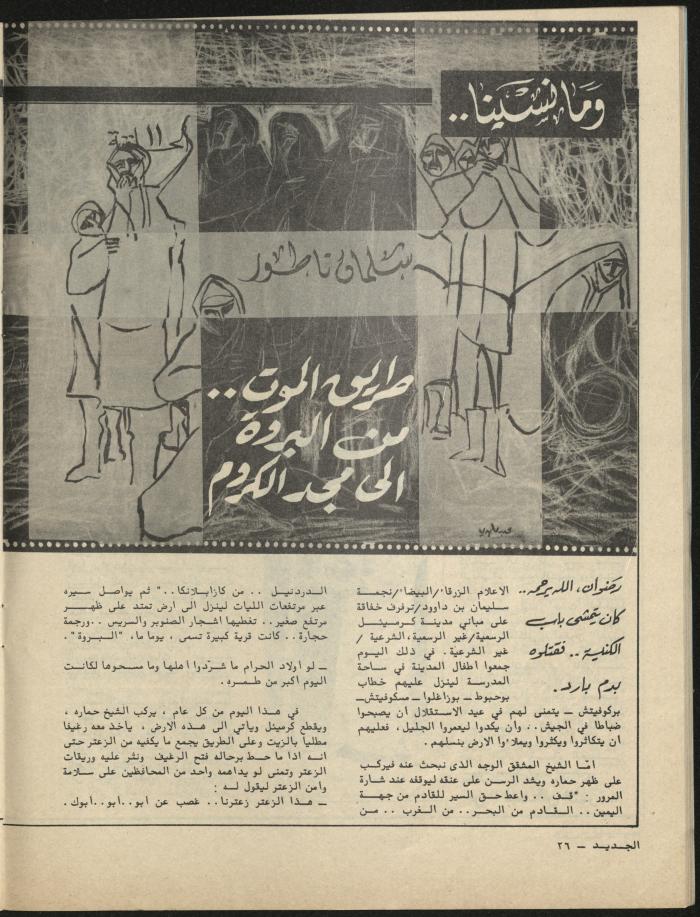 وَمَا نسَينا..
سلمان ناطور
طريق الموت..
من البروة
الى مجد الكروم
رضوان، الله يرحمه..
كان يتمشى بباب
الكنيسة.. فقتلوه
بدم بارد.
الاعلام الزرقاء/البيضاء/نجمة
سليمان بن داوود/ترفرف خفاقة
على مباني مدينة كرميئيل
الرسمية/غير الرسمية، الشرعية /
غير الشرعية. في ذلك اليوم
جمعوا اطفال المدينة في ساحة
المدرسة لينزل عليهم خطاب
بوحبوط ــ بوزاغلوا ــ مسكوفيتش ــ
بركوفيتش ــ يتمنى لهم في عيد الاستقلال ان يصبحوا
ضباطا في الجيش.. وان يكدوا ليعمروا الجليل، فعليهم
ان يتكاثروا ويكثروا ويملاءوا الارض بنسلهم.
امّا الشيخ المشقق الوجه الذى نبحث عنه فيركب
على ظهر حماره ويشد الرسن على عنقه ليوقفه عند شارة
المرور : "قف .. واعط حق السير للقادم من جهة
اليمين.. القادم من البحر.. من الغرب .. من
الدردنيل .. من كازابلانكا.." ثم يواصل سيره
عبر مرتفعات الليات لينزل الى ارض تمتد على ظهر
مرتفع صغير.. تغطيها اشجار الصنوبر والريس ..ورجمة
حجارة.. كانت قرية كبيرة تسمى ، يوما ما، "البروة".
ــ لو اولاد الحرام ما شرّدوا اهلها وما مسحوها لكانت
اليوم اكبر من طمره.
في هذا اليوم من كل عام ، يركب الشيخ حماره ،
ويقطع كرميئل وياتي الى هذه الارض ، يأخذ معه رغيفا
مطليا بالزيت وعلى الطريق يجمع ما يكفيه من الزعتر حتى
انه اذا ما حط برحاله فتح الرغيف ونثر عليه وريقات
الزعتر وتمنى لو يداهمه واحد من المحافظين على سلامة
وأمن الزعتر ليقول له :
ــ هذا الزعتر زعترنا.. غصب عن أبو..أبو..أبوك.
الجديد ــ ٢٦